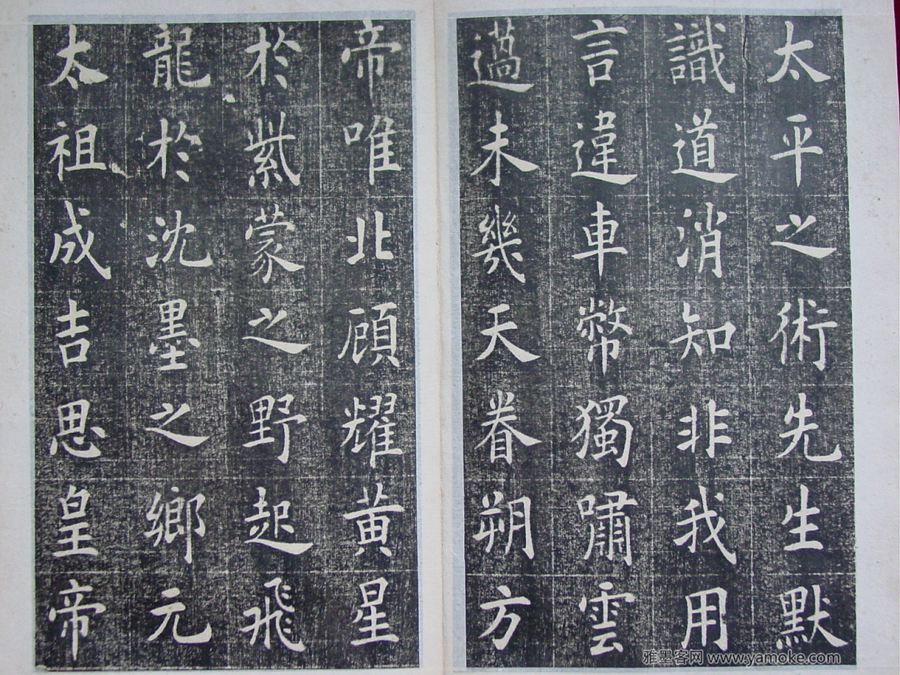 太平之術先生默
識道消知非我用
言違車幣獨嘯雲
薖未幾天眷朔方
帝唯北顧耀黄星
於紫蒙之野起飛
龍於沈墨之鄉元
太祖成吉思皇帝
雅墨客网 www.yamoke.com